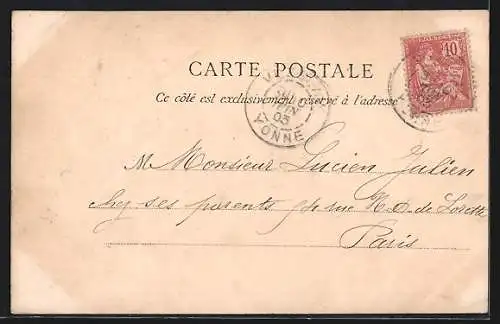 10
CARTE POSTALE
Ce côté est exclusivement réservé à l'adresse
03
YONNE
M Monsieur Lucien Julien
chez ses parents 54 rue N. D. de Lorette
Paris